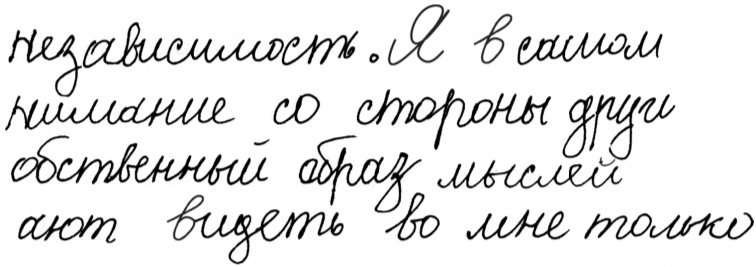 независимость. Я в самом
нимание со стороны други
обственный образ мыслей
ают видеть во мне только